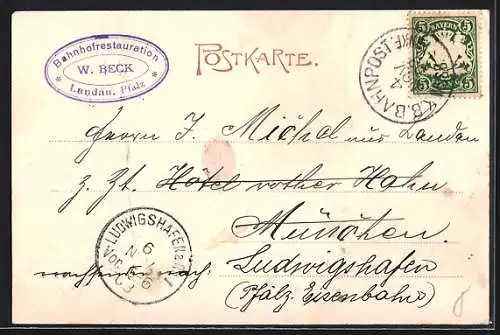 Bahnhofrestauration
W. BECK
Landau, Pfalz
POSTKARTE.
BAYERN
5 5
5 5
K.B. BAHNPOST
Herrn J. Michel aus Landau
z. Zt. Hôtel rother Hahn
München.
nachsenden nach: Ludwigshafen
(Pfälz. Eisenbahn)
LUDWIGSHAFEN a. Rh.